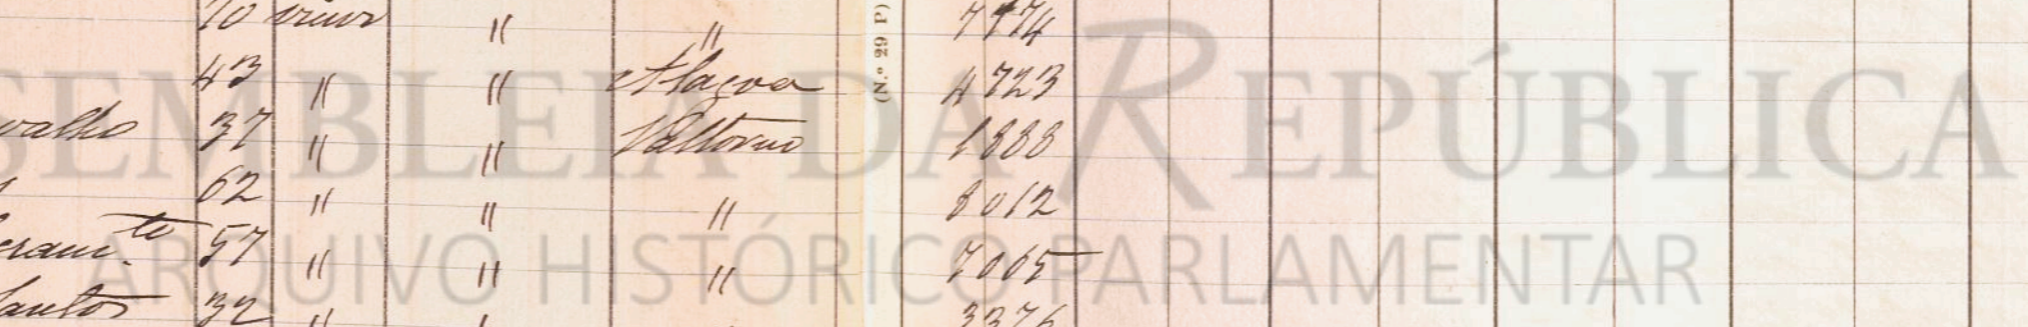 70 viuvo " " 7974
43 " " Alagoa 4723
valho 37 " " Valtorno 1888
62 " " " 8012
cram.to 57 " " " 7005
Santos 32 " 3376
(N.º 29 P)
ASSEMBLEIA DA REPÚBLICA
ARQUIVO HISTÓRICO PARLAMENTAR